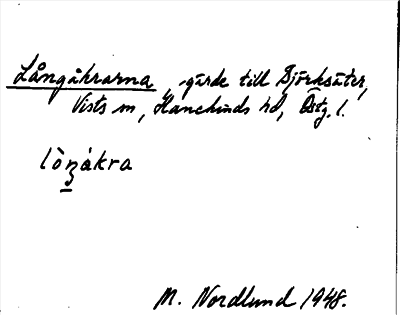 Långåkrarna, gärde till Björksäter,
Vists sn, Hanekinds hd, Östg. l.
lòŋákra
M. Nordlund 1948.